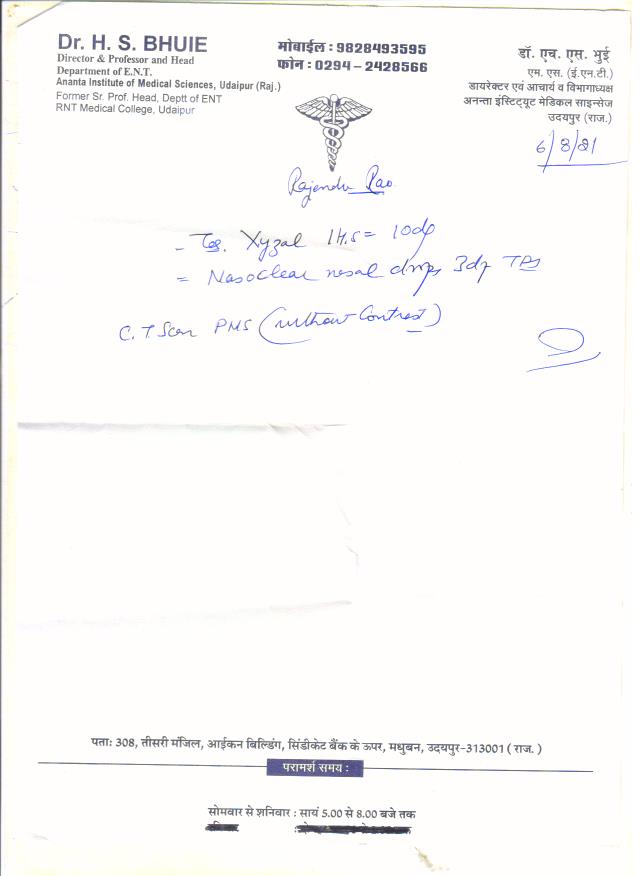 Dr. H. S. BHUIE
Director & Professor and Head
Department of E.N.T.
Ananta Institute of Medical Sciences, Udaipur (Raj.)
Former Sr. Prof. Head, Deptt of ENT
RNT Medical College, Udaipur
मोबाईल : 9828493595
फोन : 0294 - 2428566
डॉ. एच. एस. भुई
एम. एस. (ई.एन.टी.)
डायरेक्टर एवं आचार्य व विभागाध्यक्ष
अनन्ता इंस्टिट्यूट मेडिकल साइन्सेज
उदयपुर (राज.)
6/8/21
Rajendra Rao
- Xyzal 1 H.S = 10
= Nasoclear nasal drops 3
C.T Scan PNS (without Contrast)
पता: 308, तीसरी मंजिल, आईकन बिल्डिंग, सिंडीकेट बैंक के ऊपर, मधुबन, उदयपुर-313001 ( राज. )
परामर्श समय :
सोमवार से शनिवार : सायं 5.00 से 8.00 बजे तक